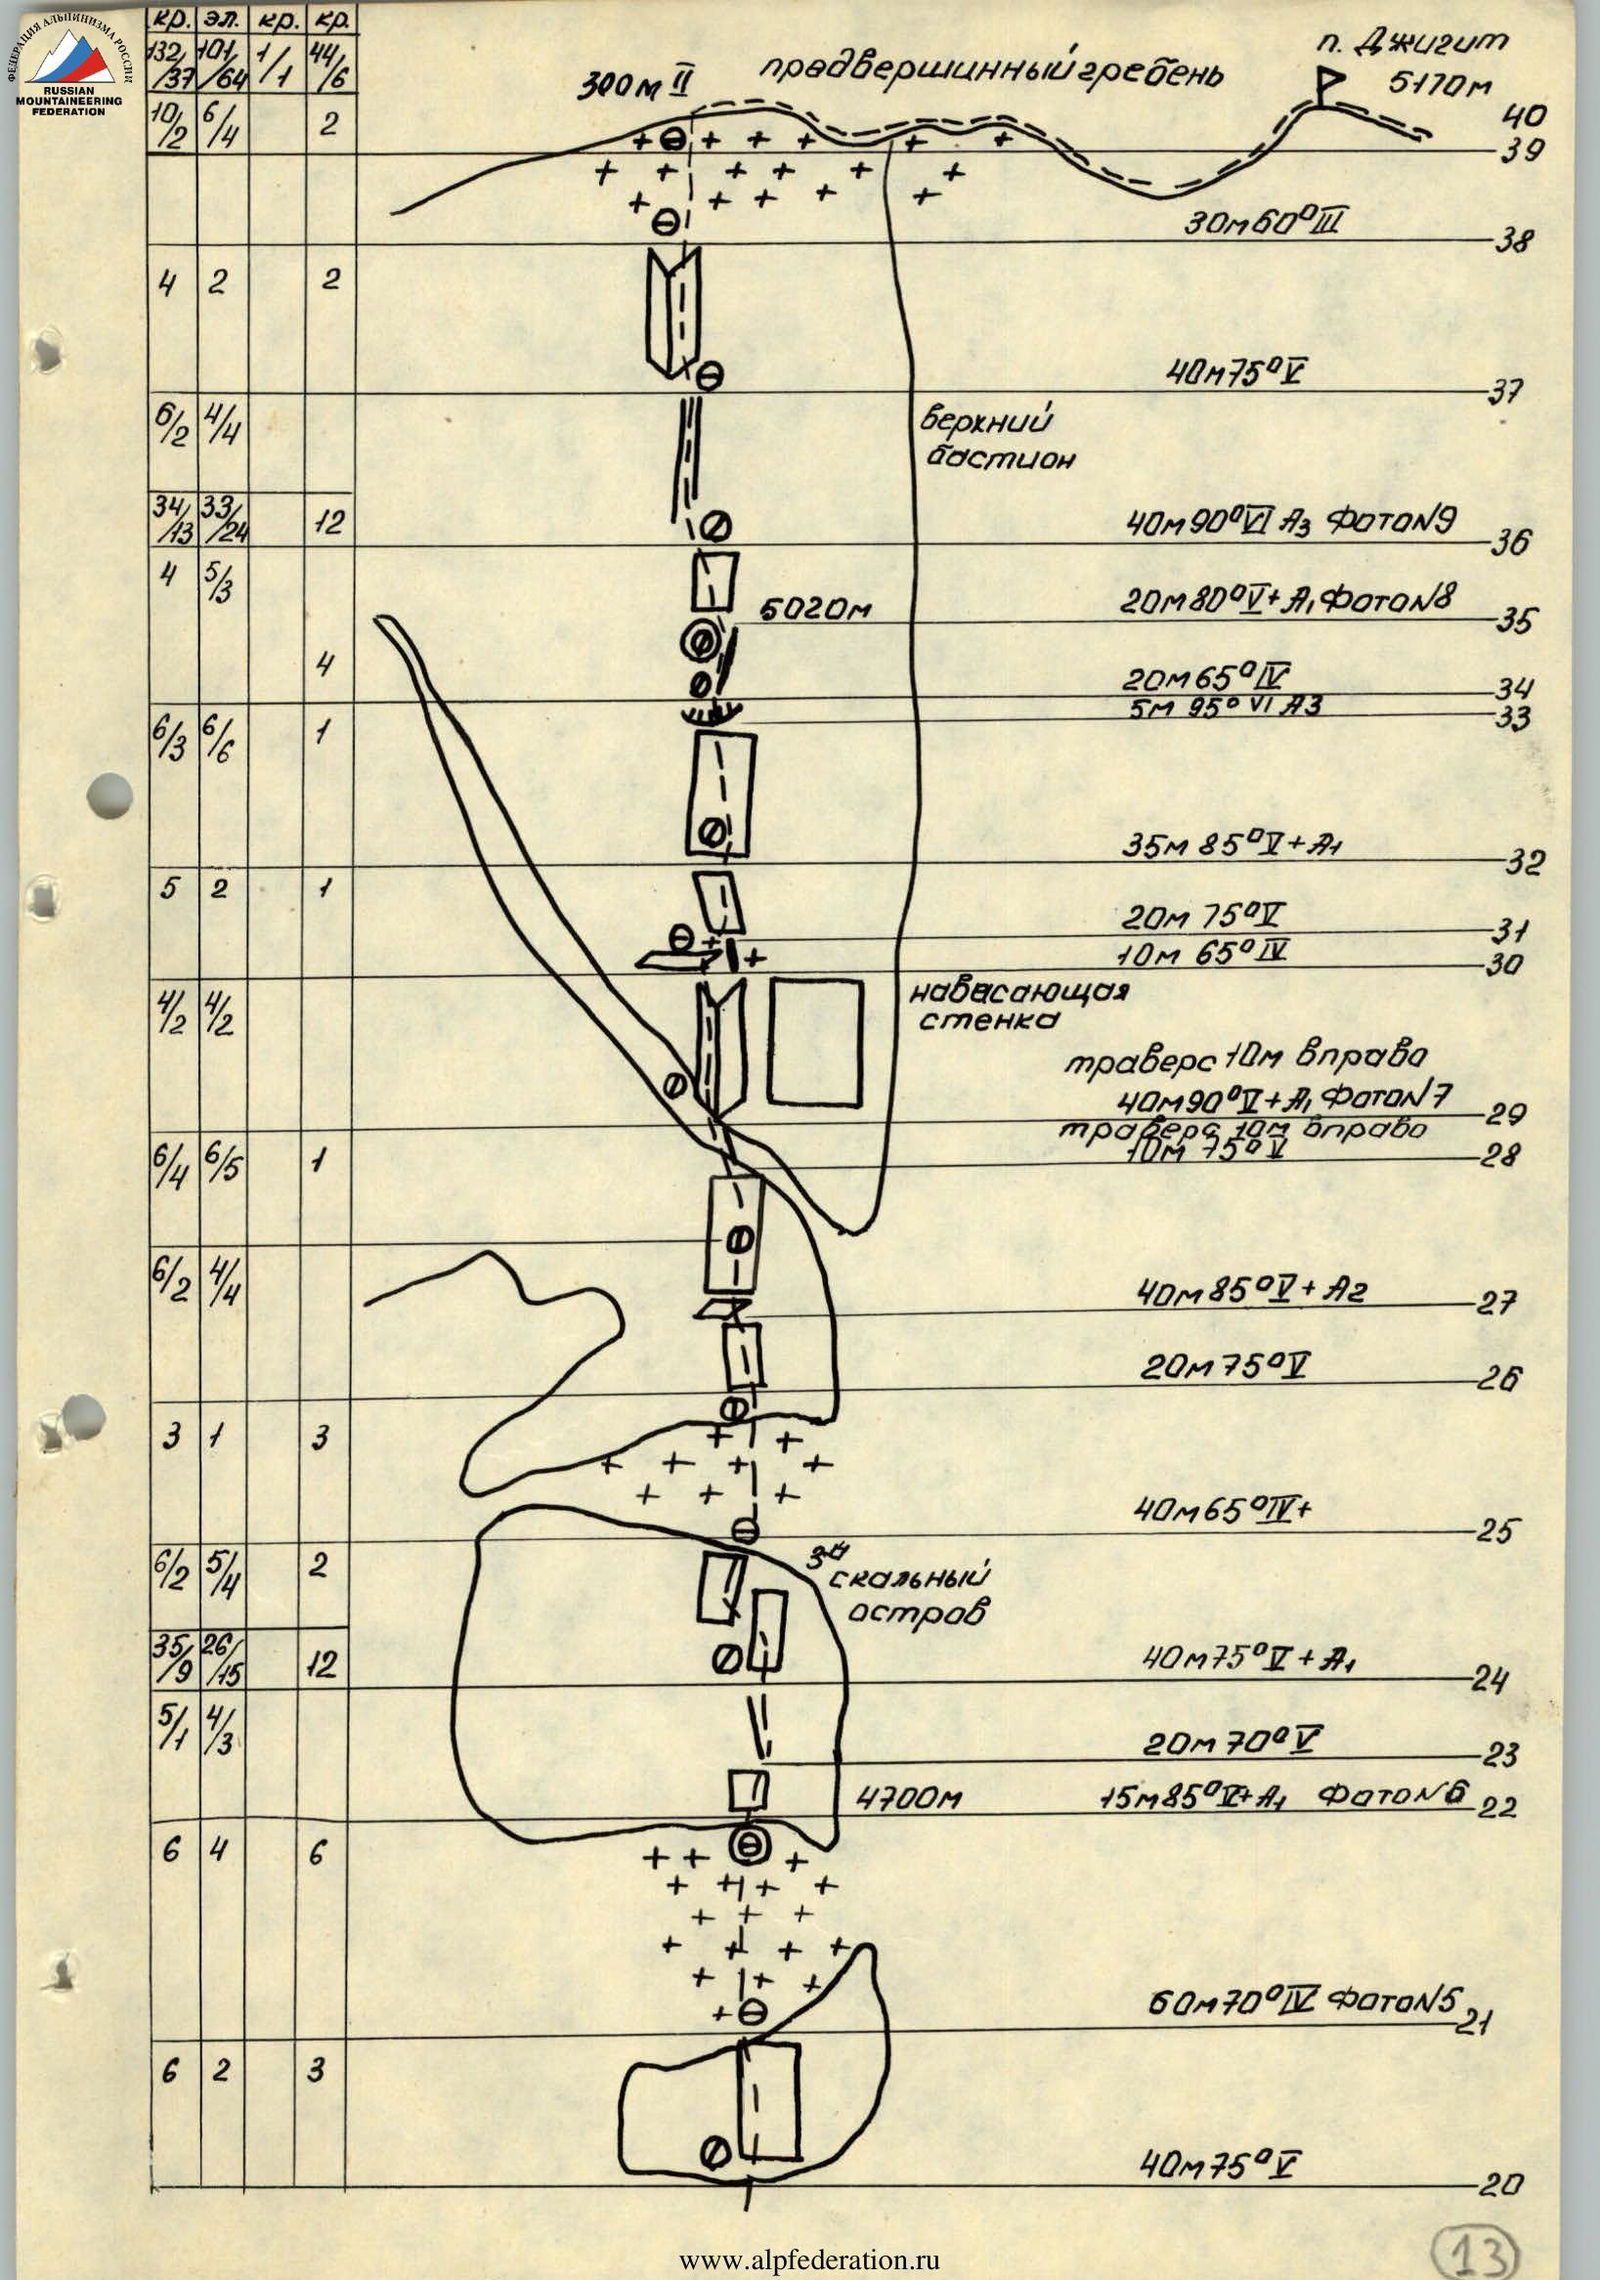 ФЕДЕРАЦИЯ АЛЬПИНИЗМА РОССИИ
RUSSIAN
MOUNTAINEERING
FEDERATION
кр. эл. кр. кр.
132/37 101/64 1/1 44/6
п. Джигит
5170м
300м II предвершинный гребень
40
10/2 6/4 2
39
30м60° III
38
4 2 2
40м75° V
37
6/2 4/4
верхний
бастион
34/13 33/24 12
40м90° VI А3 Фото N9
36
4 5/3
5020м
20м80° V+ А1 Фото N8
35
4
20м65° IV
34
5м 95° VI А3
33
6/3 6/6 1
35м 85° V+ А1
32
5 2 1
20м 75° V
31
10м 65° IV
30
4/2 4/2
навасающая
стенка
траверс 10м вправо
40м90° V+ А1 Фото N7
29
траверс 10м вправо
10м 75° V
28
6/4 6/5 1
6/2 4/4
40м85° V+ А2
27
20м75° V
26
3 1 3
40м65° IV+
25
6/2 5/4 2
3й
скальный
остров
35/9 26/15 12
40м75° V+ А1
24
5/1 4/3
20м70° V
23
4700м
15м85° V+ А1 Фото N6
22
6 4 6
60м70° IV Фото N5
21
6 2 3
40м75° V
20
13
www.alpfederation.ru